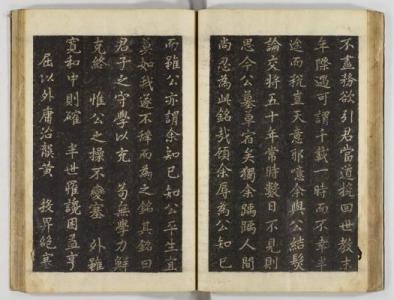 不盡務欲引君當道挽回世教末
年際遇可謂千載一時而不幸半
途而稅豈天意邪噫余與公結髮
論交將五十年常時數日不見則
思今公墓草宿矣獨余踽踽人間
尚忍為與銘哉顧余辱為公知已
而雖公亦謂余知已知公平生宜
莫如我遂不辭而為之銘其銘曰
君子之守學以充 苟無學力鮮
克終 惟公之操不變塞 外雖
寬和中則確 半世罹讒困益亨
屈以外庸治龔黃 投畀絕塞